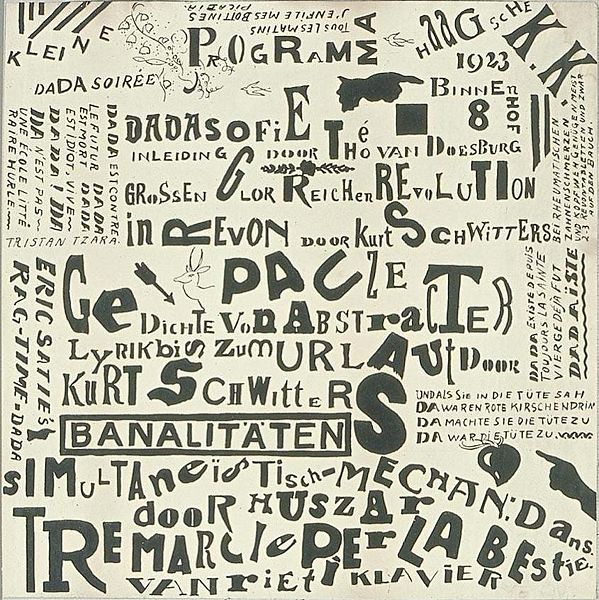 KLEINE
DADA SOIRÉE
TOUS LES MATINS
J'ENFILE MES BOTTINES
PICABIA
PROGRAMMA
HAAGSCHE
K.K.
1923
BINNEN
8
HOF
DADASOFIE
Té
INLEIDING DOOR THÉO VAN DOESBURG
GROSSEN GLORREICHEN REVOLUTION
in REVON DOOR Kurt SCHWITTERS
DADA EST CONTRE
LE FUTUR DADA
EST MORT DADA
EST IDIOT, VIVE
DADA! DADA
N'EST PAS
UNE ÉCOLE LITTÉ
RAIRE HURLE
TRISTAN TZARA
BEI RHEUMATISCHEN
ZAHNENSCHMERZEN
UND KOPF
2-3 REVONTABLETTEN UND ZWAR
AUF DEN BAUCH.
ERIC SATIE'S
RAG-TIME=DADA
Ge PAUZE
DICHTE VON ABSTraCTER
LYRIK bis ZUM URLAUt DOOR
KURT SCHWitteRS
DADA EXISTE DEPUIS
TOUJOURS LA SANTE
VIERGE DÉJÀ FUT
DADAÏSTE
UND ALS SIE IN DIE TÜTE SAH
DA WAREN ROTE KIRSCHEN DRIN
DA MACHTE SIE DIE TÜTE ZU
DA WAR DIE TÜTE ZU.
BANALITÄTEN
SIMULTANeïsTisch-MECHAN: Dans.
dooR HUSZAR
TRE MARCIe PEr LA BEstie.
VAN rieti KLAVIER